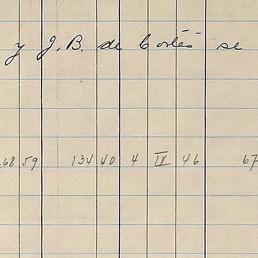 y J. B. de Cortés se
68 59 134 40 4 IV 46 67